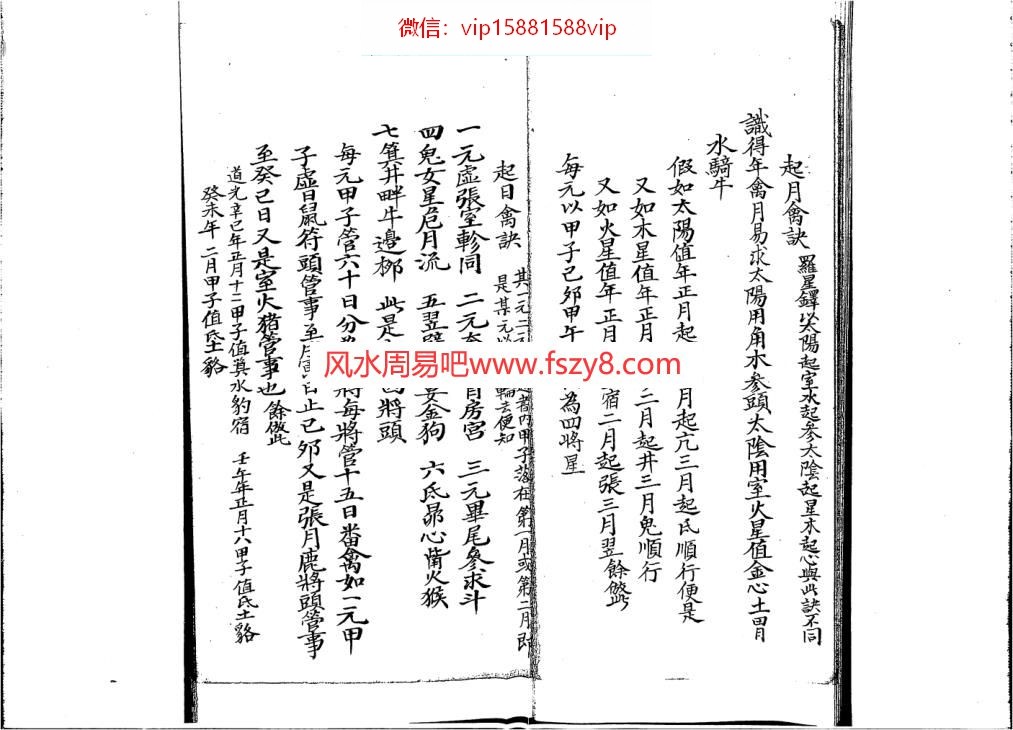 微信：vip15881588vip
起月禽訣 羅星鐸以太陽起室水起參太陰起星木起心與此訣不同
識得年禽月易求太陽用角木參頭太陰用室火星值金心土胃
水騎牛
假如太陽值年正月起 月起亢三月起氐順行便是
又如木星值年正月 二月起井三月鬼順行
又如火星值年正月 宿二月起張三月翌餘倣此
每元以甲子己夘甲午 為四將星
风水周易吧www.fszy8.com
起日禽訣 其一元二元 者内甲子落在第一月或第二月即
是某元以 輪去便知
一元虛張室軫同 二元奎 房宫 三元畢尾參求斗
四鬼女星危月流 五翌壁 金狗 六氐昴心觜火猴
七箕井畔牛邊栁 此是 將頭
每元甲子管六十日分為 將每將管十五日番禽如一元甲
子虛日鼠符頭管事至 止己夘又是張月鹿將頭管事
至癸己日又是室火猪管事也 餘倣此
道光辛巳年正月十二甲子值箕水豹宿 壬午年正月十六甲子值氐土貉
癸未年二月甲子值氐土貉